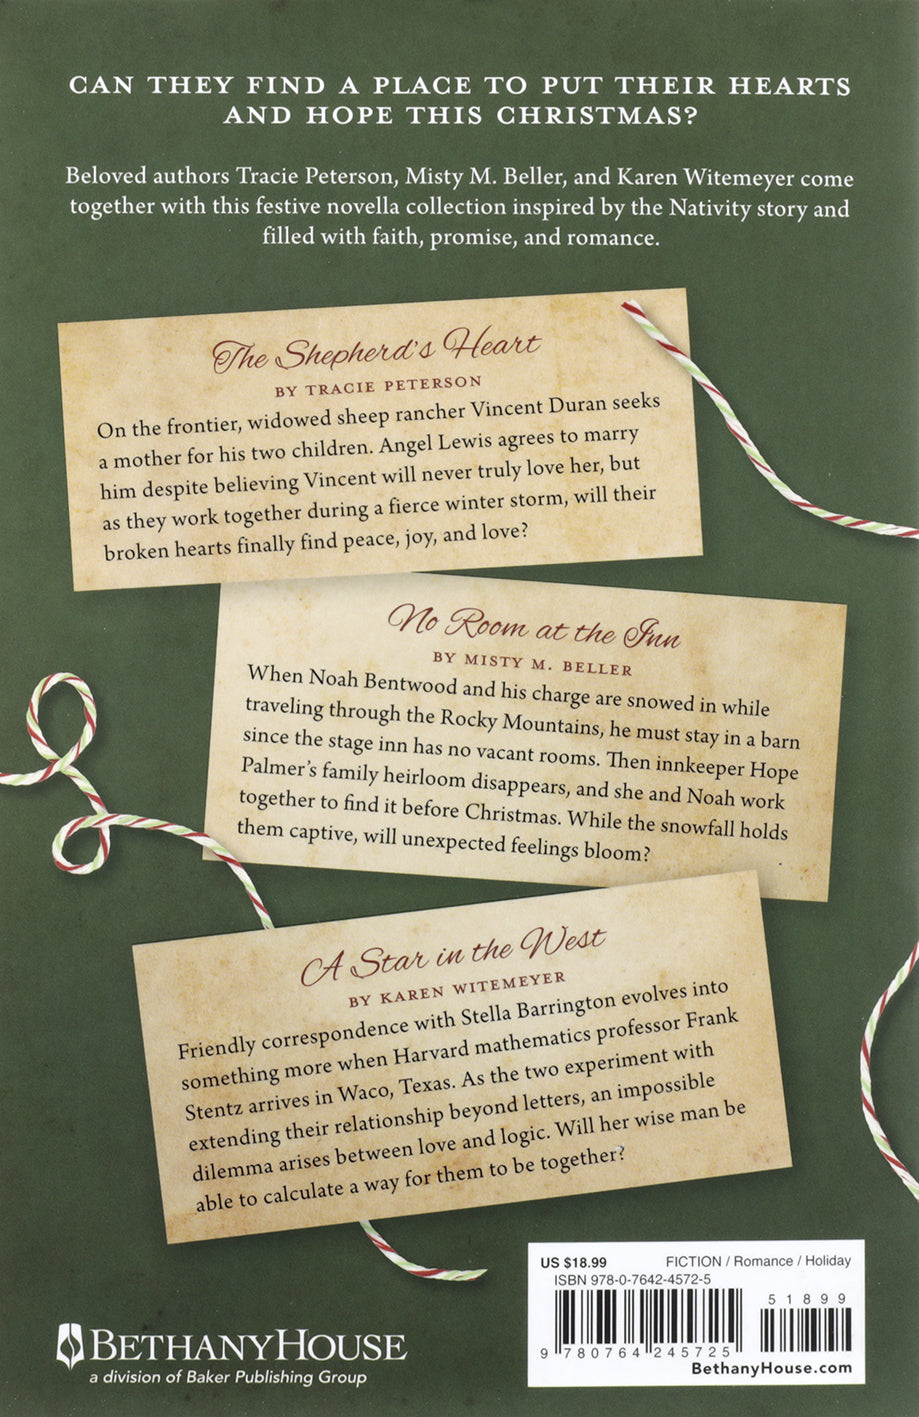 CAN THEY FIND A PLACE TO PUT THEIR HEARTS
AND HOPE THIS CHRISTMAS?
Beloved authors Tracie Peterson, Misty M. Beller, and Karen Witemeyer come
together with this festive novella collection inspired by the Nativity story and
filled with faith, promise, and romance.
The Shepherd's Heart
BY TRACIE PETERSON
On the frontier, widowed sheep rancher Vincent Duran seeks
a mother for his two children. Angel Lewis agrees to marry
him despite believing Vincent will never truly love her, but
as they work together during a fierce winter storm, will their
broken hearts finally find peace, joy, and love?
No Room at the Inn
BY MISTY M. BELLER
When Noah Bentwood and his charge are snowed in while
traveling through the Rocky Mountains, he must stay in a barn
since the stage inn has no vacant rooms. Then innkeeper Hope
Palmer's family heirloom disappears, and she and Noah work
together to find it before Christmas. While the snowfall holds
them captive, will unexpected feelings bloom?
A Star in the West
BY KAREN WITEMEYER
Friendly correspondence with Stella Barrington evolves into
something more when Harvard mathematics professor Frank
Stentz arrives in Waco, Texas. As the two experiment with
extending their relationship beyond letters, an impossible
dilemma arises between love and logic. Will her wise man be
able to calculate a way for them to be together?
US $18.99 FICTION / Romance / Holiday
ISBN 978-0-7642-4572-5
51899
9 780764 245725
BethanyHouse.com
BETHANYHOUSE
a division of Baker Publishing Group